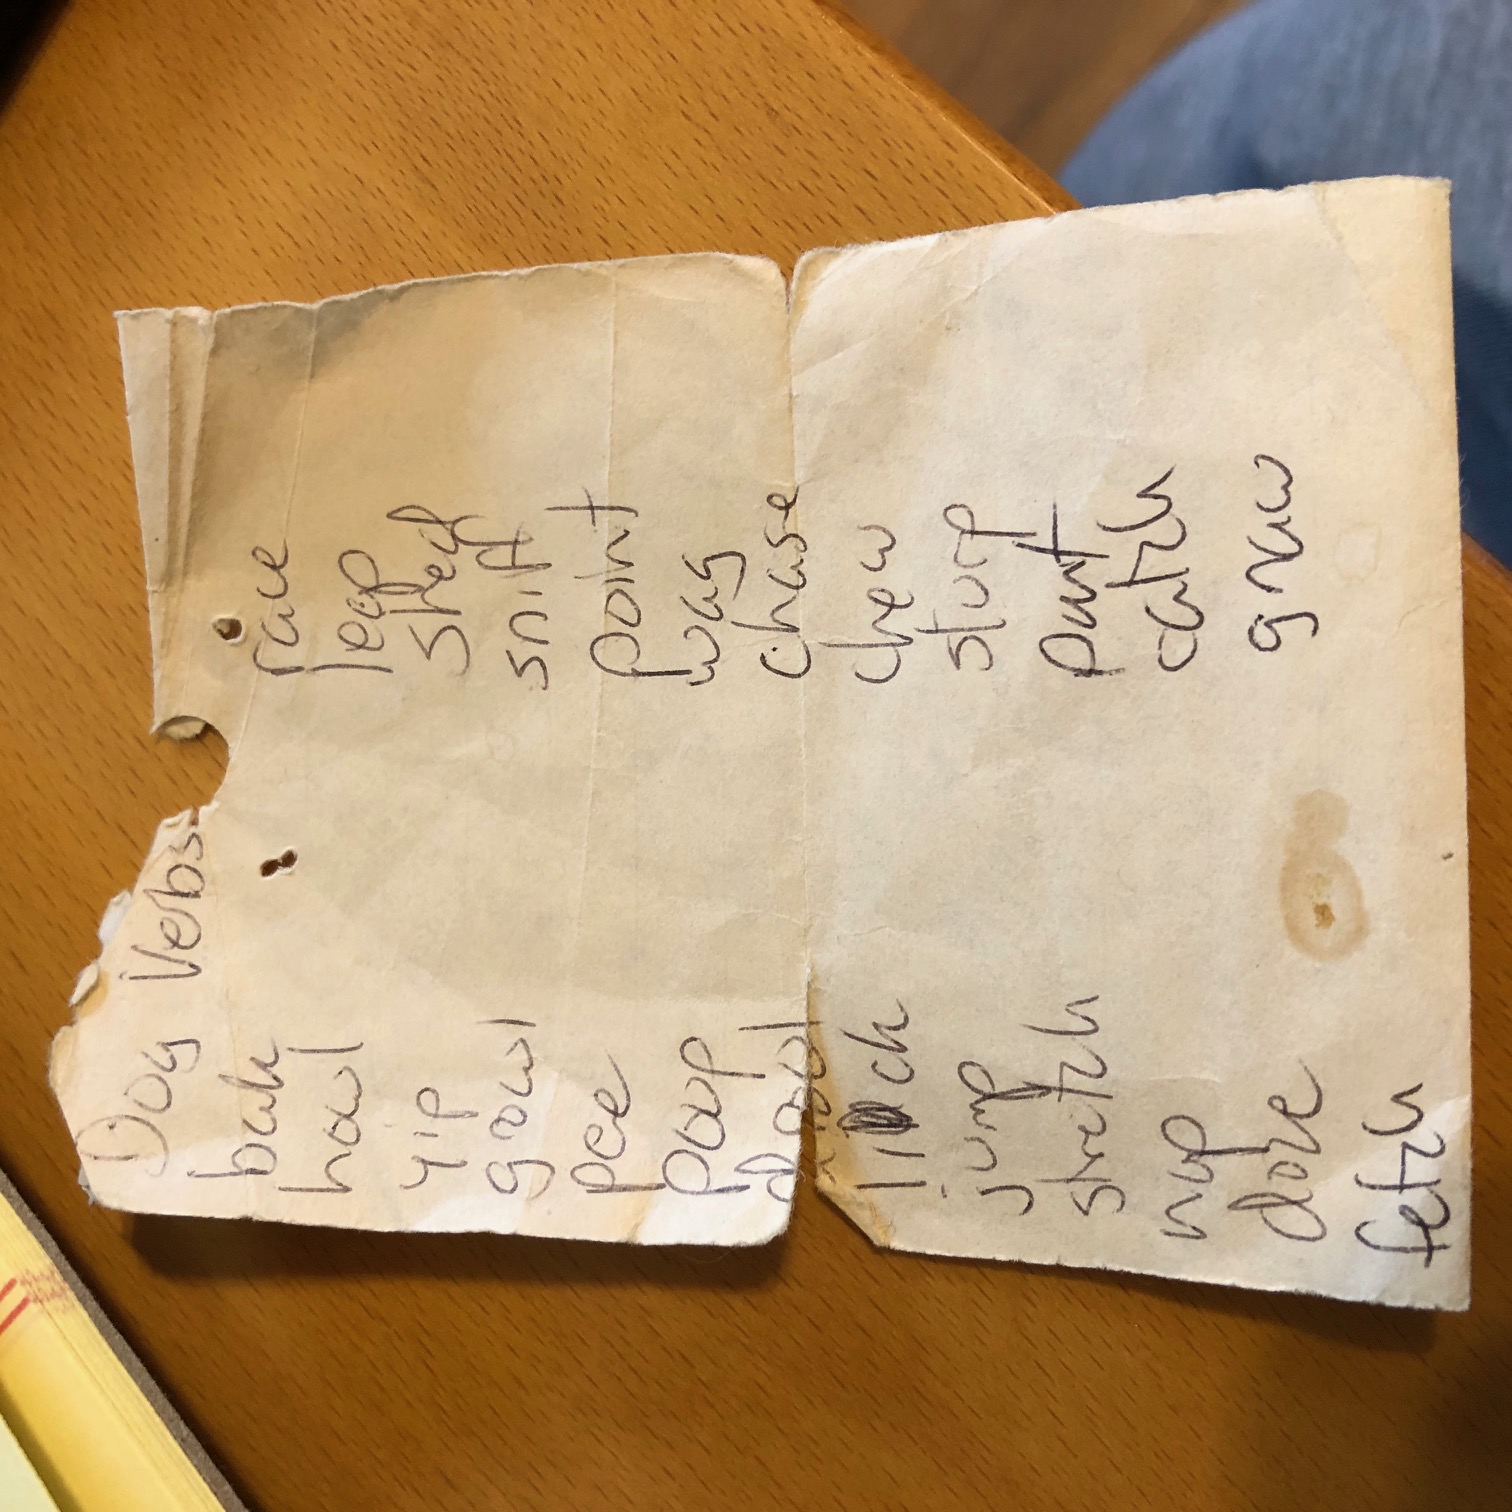 Dog Verbs
bark
howl
yip
growl
pee
poop
drool
lick
jump
stretch
nap
doze
fetch
race
leap
shed
sniff
point
wag
chase
chew
slurp
pant
catch
gnaw